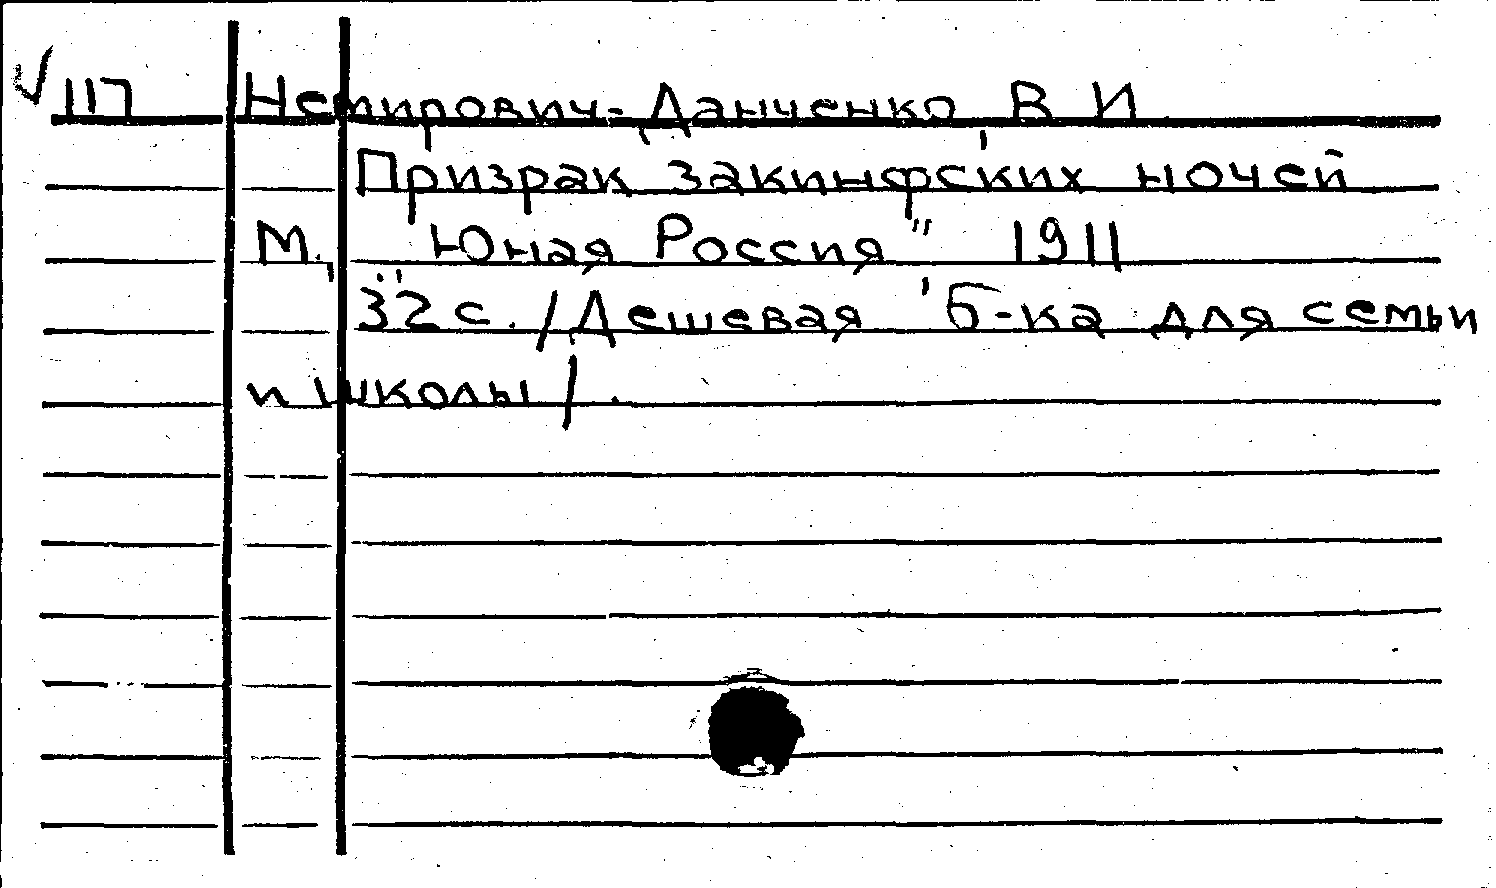 117 Немирович-Данченко, В И
Призрак закинфских ночей
М., "Юная Россия", 1911
32 с. /Дешевая б-ка для семьи
и школы/.